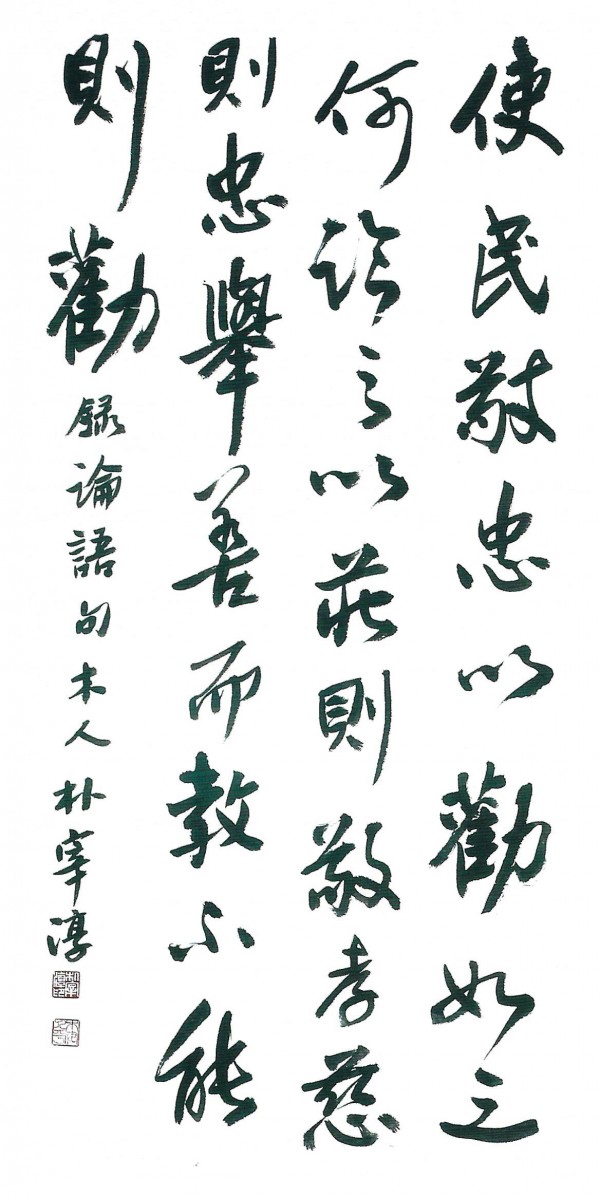 使民敬忠以勸如之
何臨之以莊則敬孝慈
則忠舉善而教不能
則勸 録論語句 木人 朴宰淳